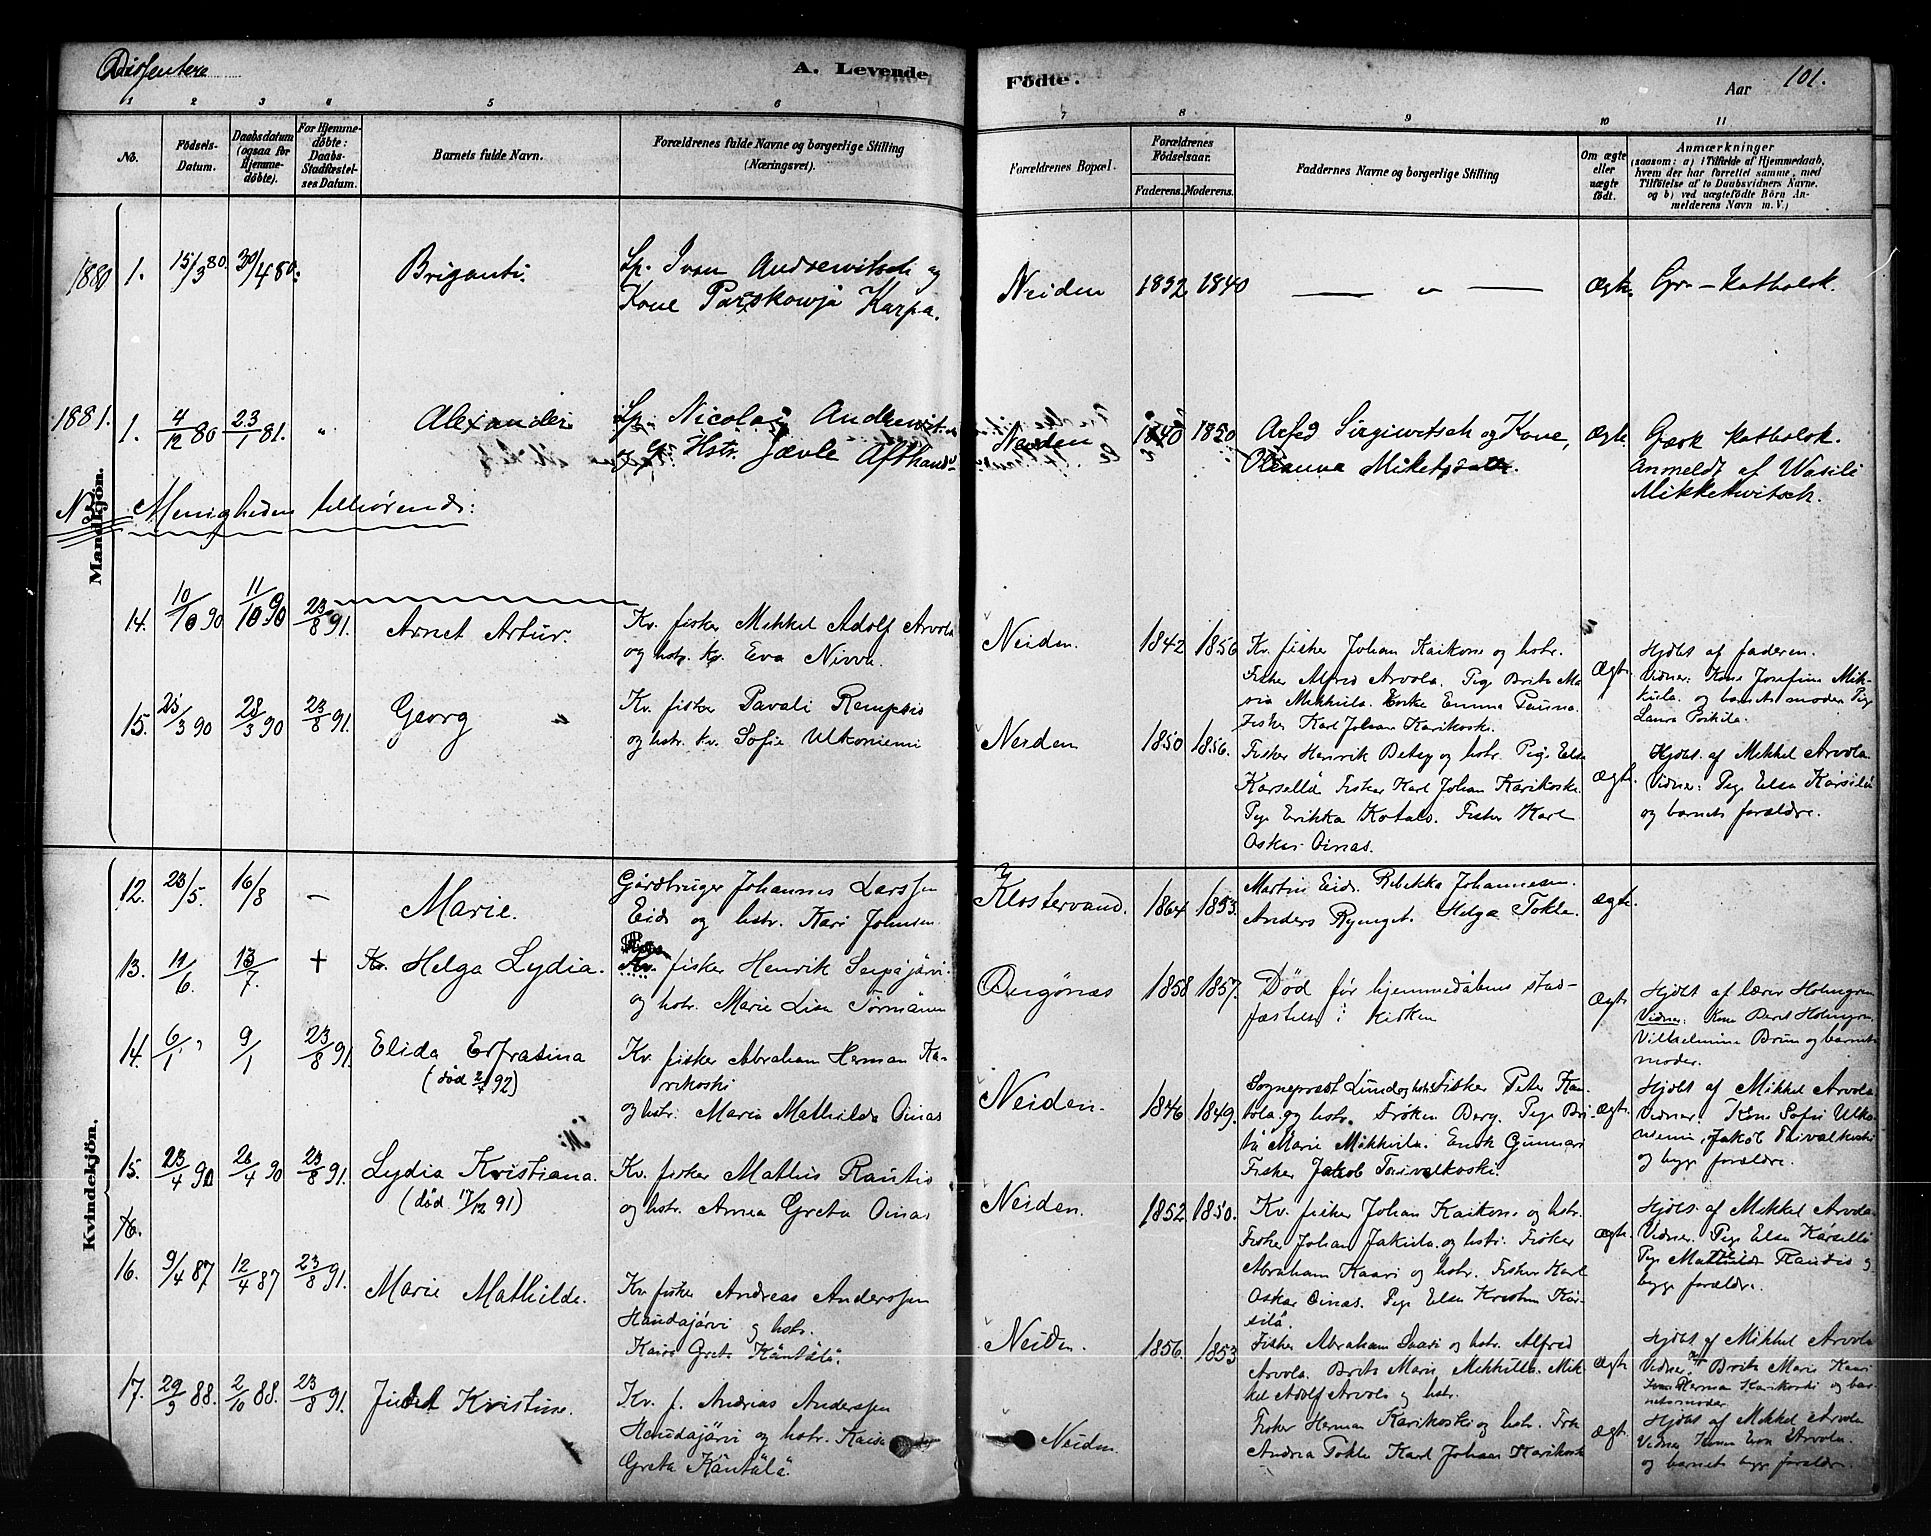 Dissentere
A. Levende
Födte.
Aar 101.
1 2 3 4 5 6 7 8 9 10 11
No.
Födsels-Datum.
Daabsdatum (ogsaa for Hjemme-döbte).
For Hjemme-döbte: Daabs-Stadfæstel-ses Datum.
Barnets fulde Navn.
Forældrenes fulde Navne og borgerlige Stilling (Næringsvei).
Forældrenes Bopæl.
Forældrenes Födselsaar.
Faderens. Moderens.
Faddernes Navne og borgerlige Stilling
Om ægte eller uægte födt.
Anmærkninger
(saasom: a) i Tilfælde af Hjemmedaab,
hvem der har forrettet samme, med
Tilföielse af to Daabsvidners Navne.
og b) ved uægtefödte Börn An-
melderens Navn m. V.)
1880 1. 15/3 80. 30/4 80. Briganti. Lp. Ivan Andrewitsch og
Kone Parskowja Karpa.
Neiden 1832 1840 — " — Ægte. Gr.-katholsk.
1881. 1. 4/12 80 23/1 81. " Alexander Lp. Nicolai Andrewitsch
og Hstr. Jævle Afthand
Neiden 1840 1850 Arfed Sirgiwitsch og Kone, Ægte Græsk katholsk.
Oleanna Anmeldt af Wasili
Mikkelwitsch.
Mandkjön.
NB Menigheden tilhørende:
14. 10/10 90 11/10 90 23/8 91. Arnet Artur. Kv. fisker Mikkel Adolf Arvola
og hstr. kv. Eva Nivva.
Neiden. 1842 1856 Kv. fisker Johan Kaikone og hstr.
Fisker Alfred Arvola. Pige Brita Ma-
ria Mikkula. Enke Emma Pauna.
Fisker Karl Johan Karikoski.
Ægte. Hjdbt af faderen.
Vidner: Kone Josefine Mik-
kula. og barnets moder Pige
Laura
15. 23/3 90 28/3 90 23/8 91. Georg Kv. fisker Pavali Rempsio
og hstr. kv. Sofie Ulkoniemi
Neiden 1850 1856. Fisker Henrik Betsy og hstr. Pige Elsa
Karsellä Fisker Karl Johan Karikoski
Pige Erikka Kotala. Fisker Karl
Oskar Oinas.
Ægte. Hjdbt. af Mikkel Arvola
Vidner: Pige Elsa Karsilä
og barnets forældre.
Kvindekjön.
12. 23/5. 16/8 — Marie. Gårdbruger Johannes Larssen
Eide og hstr. Kari Johnsen
Klostervand. 1864 1853. Martin Eide. Rebekka Johannesen.
Anders Rynget. Helga Tokle.
Ægte.
13. 11/6. 13/7. + Kv. Helga Lydia. fisker Henrik Seipäjärvi
og hstr. Marie Lisa Törmänen
Bugönæs 1858 1857. Død før hjemmedåbens stad-
fæstelse i kirken
Ægte Hjdbt af lærer Holmgren
Vidner: Kone Berit Holmgren
Vilhelmine Brun og barnets
moder.
14. 6/1 9/1 23/8 91. Elida Erfrasina
(død 2/7 92)
Kv. fisker Abraham Herman Ka-
rikoski
og hstr. Maria Mathilde Oinas
Neiden. 1846 1849. Sogneprest Lund og hstr. Fisker Peter Kau-
og hstr. Frøken Berg. Pige Bri-
ta Marie Mikkula. Enok Gunnari
Fisker Jakob Taivalkoski.
Ægte. Hjdbt af Mikkel Arvola
Vidner: Kone Sofie Ulko-
niemi, Jakob Taivalkoski
og begge forældre.
15. 23/4 90 26/4 90 23/8 91. Lydia Kristiana.
(død 17/12 91)
Kv. fisker Mathis Rautio
og hstr. Anna Greta Oinas
Neiden. 1852 1850. Kv. fisker Johan Kaikone og hstr.
Fisker Johan Jakula. og hstr. Fisker
Abraham Kaari og hstr. Fisker Karl
Oskar Oinas. Pige Elsa Kristine Kar-
silä.
Ægte. Hjdbt. af Mikkel Arvola
Vidner. Pige Elsa Karsellä
Pige Mathilde Rautio og
begge forældre.
16.
16. 9/4 87 12/4 87 23/8 91. Marie Mathilde. Kv. fisker Andreas Anderssen
Haudajärvi og hstr.
Kaisa Greta Käntälä.
Neiden. 1856. 1853 Fisker Abraham Saari og hstr. Alfred
Arvola. Brita Marie Mikkula. Mik-
kel Adolf Arvola og hstr.
Ægte Hjdbt af Mikkel Arvola
Vidner Brita Marie Kaari
Herman Karikoski og bar-
nets moder
17. 29/9 88. 2/10 88. 23/8 91. Judit Kristine. Kv. f. Andreas Anderssen
Haudajärvi og hstr. Kaisa
Greta Käntälä.
Neiden. Fisker Herman Karikoski og hstr. Frk
Andrea Tokle Karl Johan Karikoski
Ægt. Hjdbt af Mikkel Arvola
Vidner Kone Eva Arvola.
og barnets begge forældre.